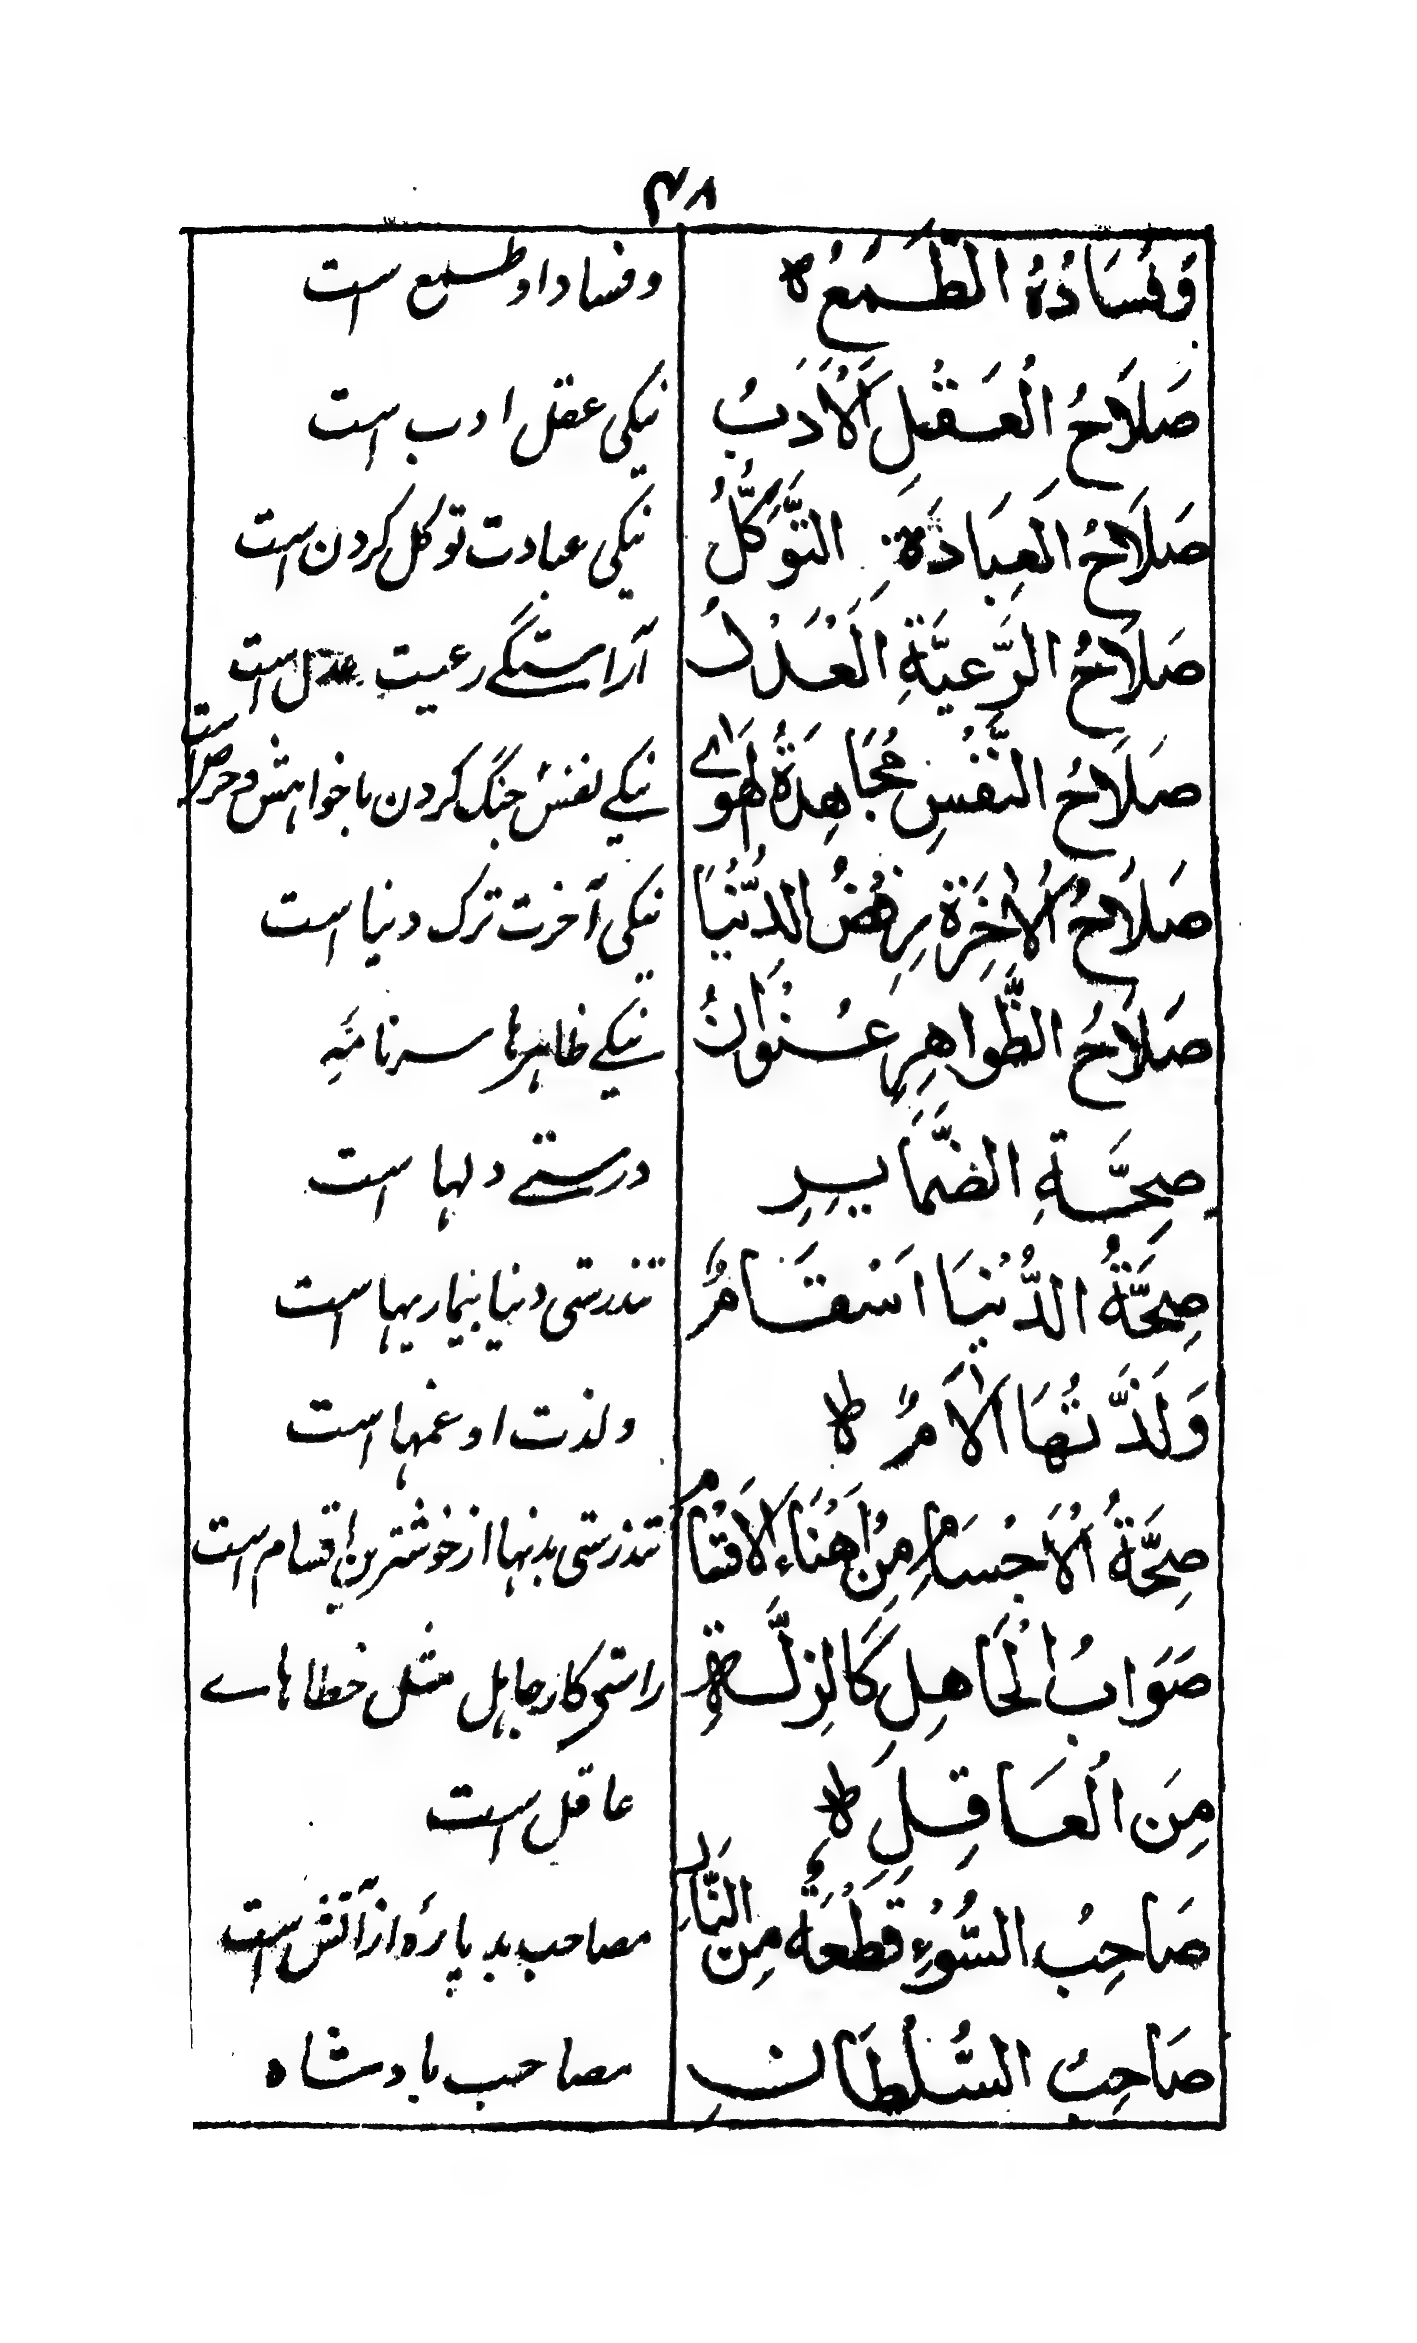 ۴۸
وَفَسَادُهُ الطَّمَعُ ط وفساد او طمع است
صَلَاحُ الْعَقْلِ اَلْاَدَبُ نیکی عقل ادب است
صَلَاحُ الْعِبَادَةِ التَّوَكُّلُ نیکی عبادت توکل کردن است
صَلَاحُ الرَّعِيَّةِ اَلْعَدْلُ آراستگے رعیت عدل است
صَلَاحُ النَّفْسِ مُجَاهِدَةُ الْهَوٰے نیکے نفس جنگ کردن باخواہش وحرص است
صَلَاحُ الْاٰخِرَةِ رِفْضُ الدُّنْيَا نیکی آخرت ترک دنیا است
صَلَاحُ الظَّوَاهِرِ عُنْوَانُ نیکے ظاہرہا سرنامۂ
صِحَّةِ الضَّمَايِرِ درستے دلہا است
صِحَّةُ الدُّنْيَا اَسْقَامٌ تندرستی دنیا بیماریہا است
وَلَذَّتُهَا اَلْاٰمٌ ط ولذت او غمہا است
صِحَّةُ الْاَجْسَامِ مِنْ اَهْنَاءِ الْاَقْسَامِ تندرستی بدنہا از خوشترین اقسام است
صَوَابُ الْجَاهِلِ كَالزِّلَّةِ راستی کار جاہل مثل خطاہاے
مِنَ الْعَاقِلِ ط عاقل است
صَاحِبُ السُّوْءِ قِطْعَةٌ مِنَ النَّارِ مصاحب بد پارۂ از آتش است
صَاحِبُ السُّلْطَانِ مصاحب بادشاہ